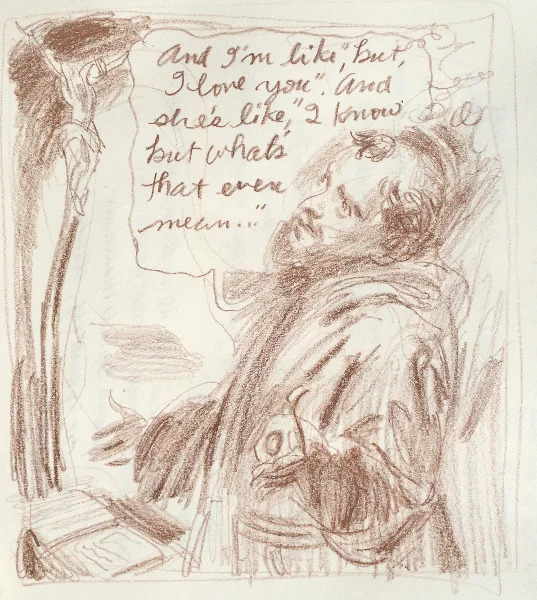 And I'm like, "but,
I love you". And
she's like, "I know
but what's
that even
mean..."